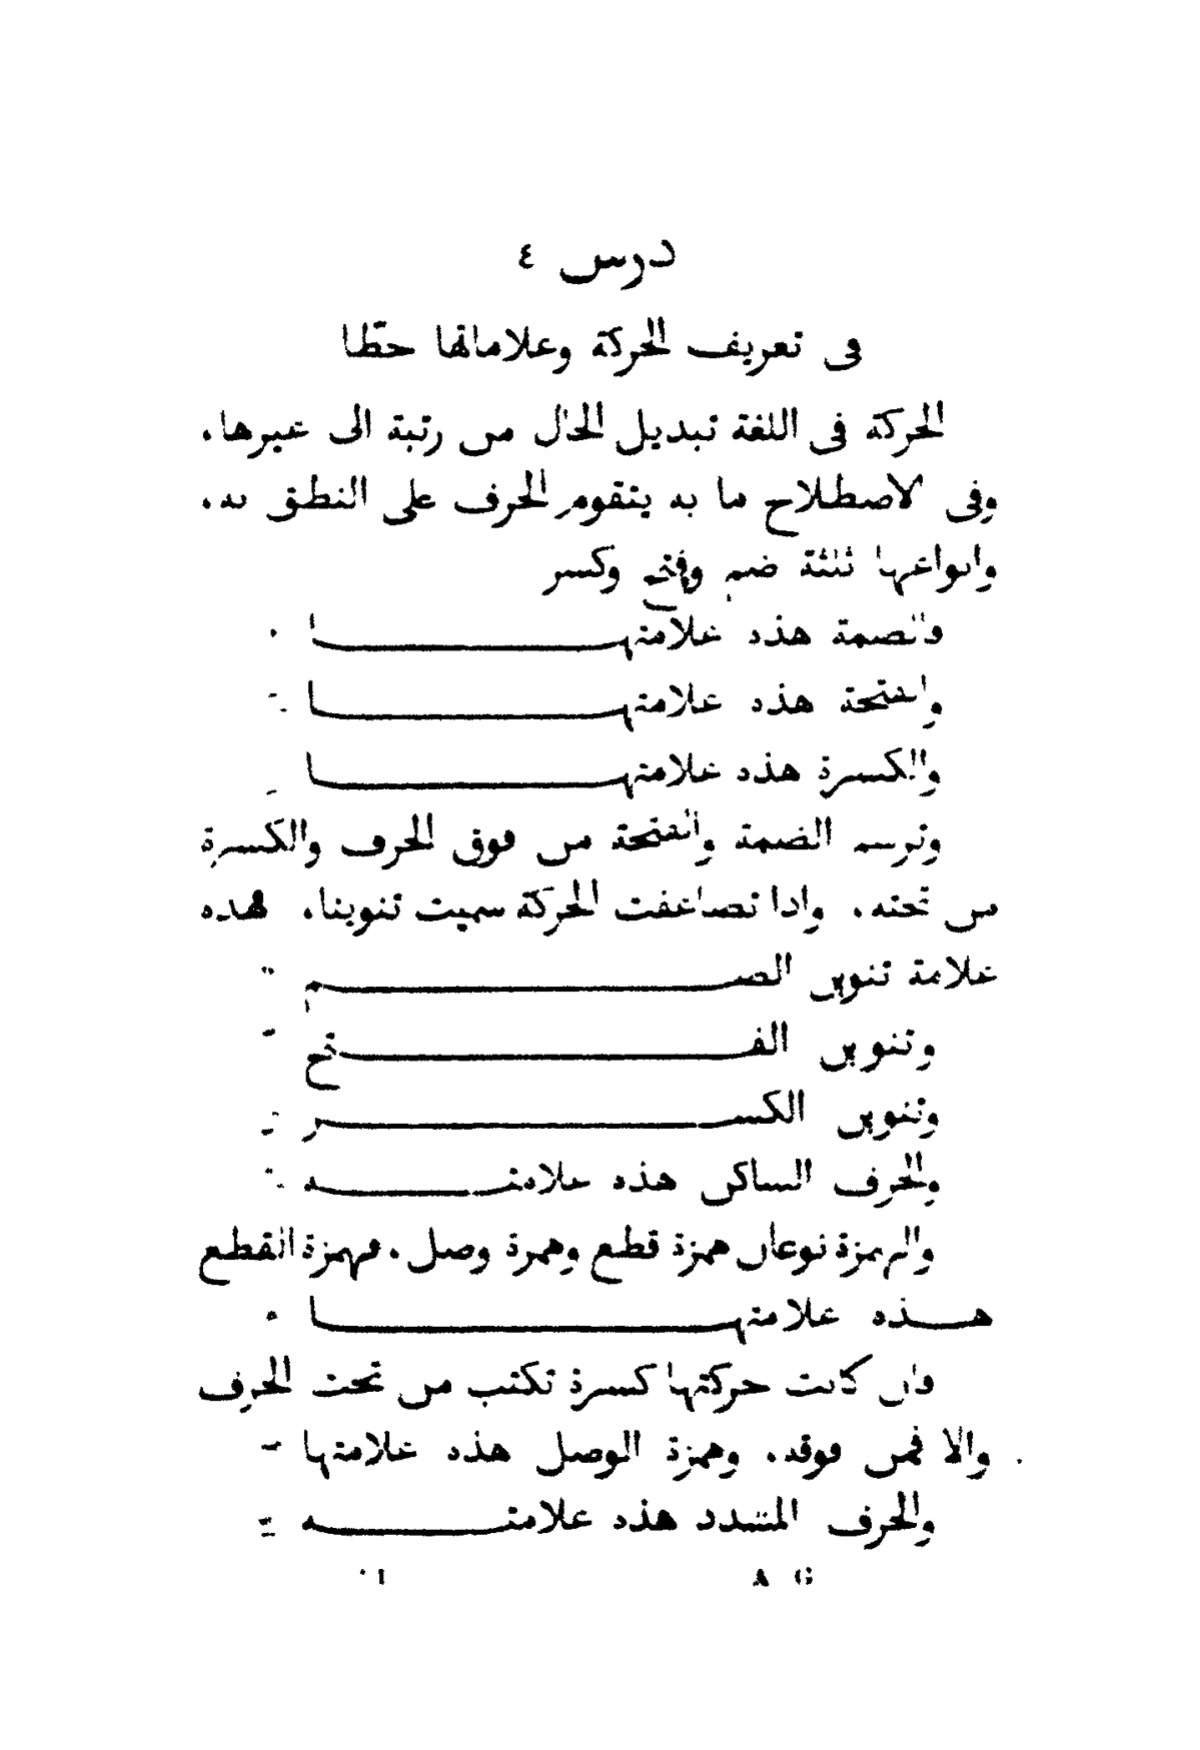 درس ٤
فى تعريف الحركة وعلاماتها خطّا
الحركة فى اللغة تبديل الحال من رتبة الى غيرها.
وفى الاصطلاح ما به يتقوم الحرف على النطق به.
وانواعها ثلثة ضم وفتح وكسر
فالضمة هذه علامتهـــــــا ُ
والفتحة هذه علامتهـــــــا َ
والكسرة هذه علامتهـــــــا ِ
وترسم الضمة والفتحة من فوق الحرف والكسرة
من تحته. واذا تضاعفت الحركة سميت تنوينا. فهذه
علامة تنوين الضـــــــم ٌ
وتنوين الفـــــــتح ً
وتنوين الكســـــــر ٍ
والحرف الساكن هذه علامتـــــــه ْ
والهمزة نوعان همزة قطع وهمزة وصل. فهمزة القطع
هـــذه علامتهـــــــا ء
فان كانت حركتها كسرة تكتب من تحت الحرف
والا فمن فوقه. وهمزة الوصل هذه علامتها
والحرف المشدد هذه علامتـــــــه ّ
A G